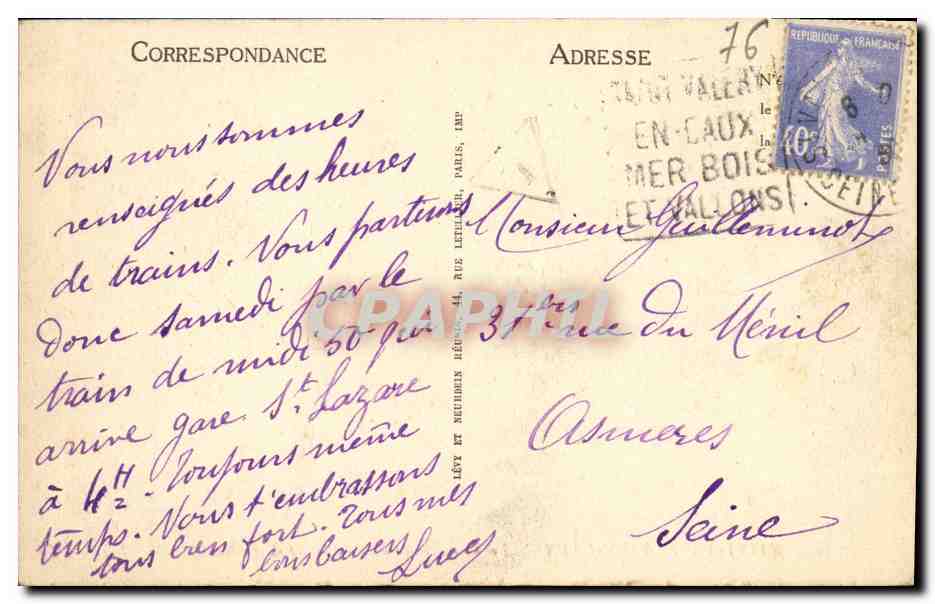 CORRESPONDANCE
Vous nous sommes
renseignés des heures
de trains. Nous partirons
donc samedi par le
train de midi 50 qui
arrive gare St. Lazare
à 4H - Toujours même
temps. Nous t'embrassons
tous bien fort. Tous mes
bons baisers
LÉVY ET NEURDEIN RÉUNIS, 44, RUE LETELLIER, PARIS, IMP
ADRESSE
76
SAINT VALERY
EN-CAUX
MER BOIS
ET VALLONS
REPUBLIQUE FRANÇAISE
40c
POSTES
SEINE
Monsieur Guilleminot
31 bis rue du Ménil
Asnieres
Seine
CPAPHIL